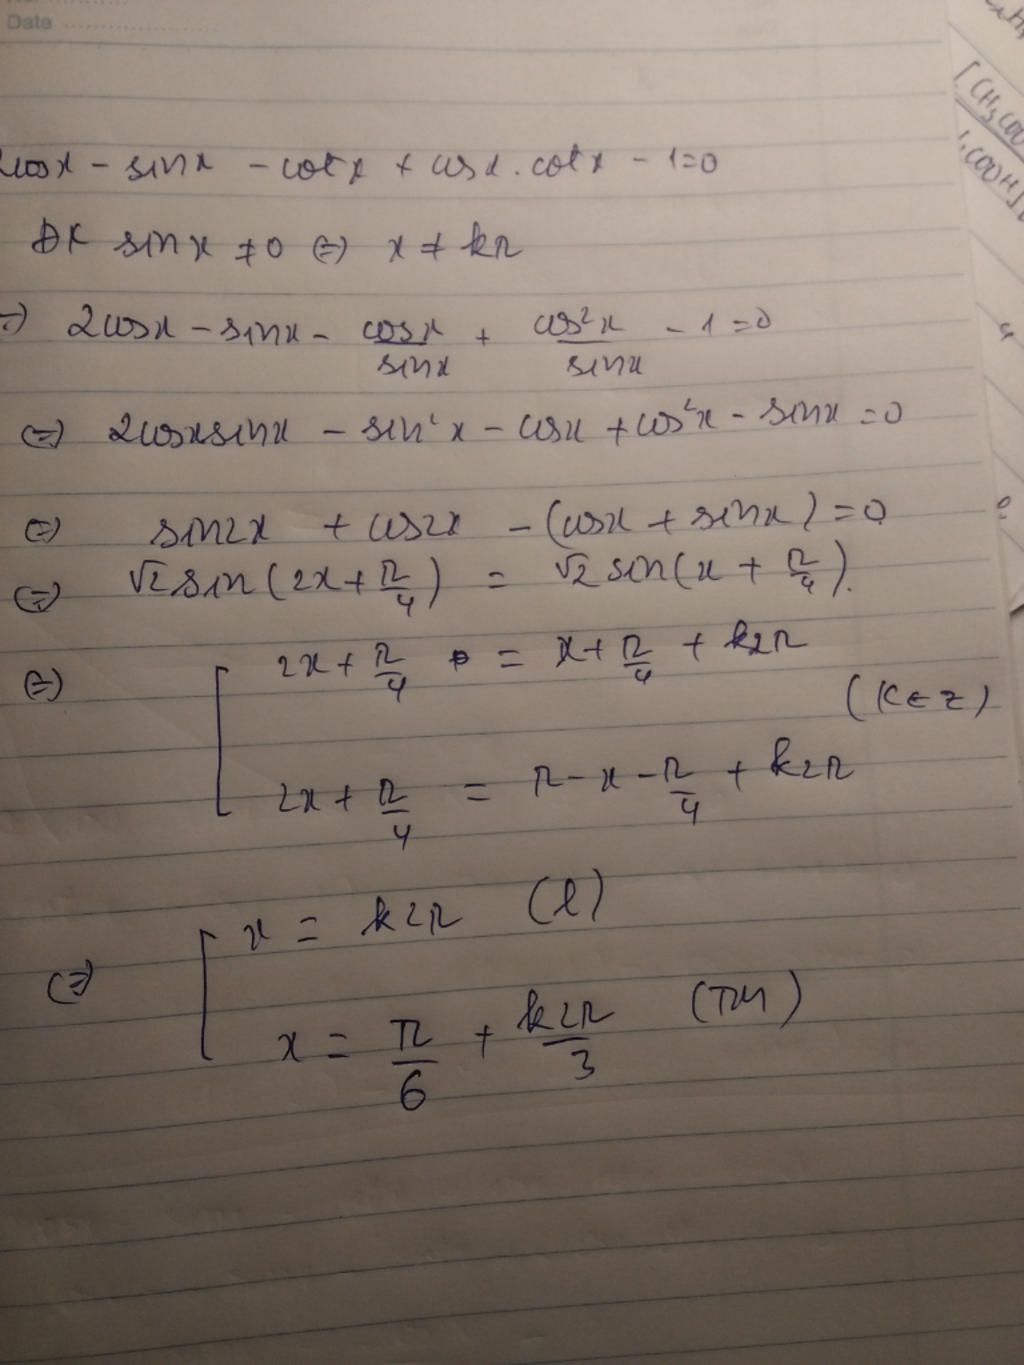 Date
2cosx - sinx - cotx + cosx.cotx - 1=0
ĐK sinx ≠ 0 (=) x ≠ kπ
=) 2cosx - sinx - cosx/sinx + cos²x/sinx - 1 = 0
(=) 2cosxsinx - sin²x - cosx + cos²x - sinx = 0
(=) sin2x + cos2x - (cosx + sinx) = 0
(=) √2sin(2x + π/4) = √2sin(x + π/4).
(=) [ 2x + π/4 = x + π/4 + k2π
(k ∈ Z)
2x + π/4 = π - x - π/4 + k2π
(=) [ x = k2π (l)
x = π/6 + k2π/3 (TM)
[CH3COO
COOH]